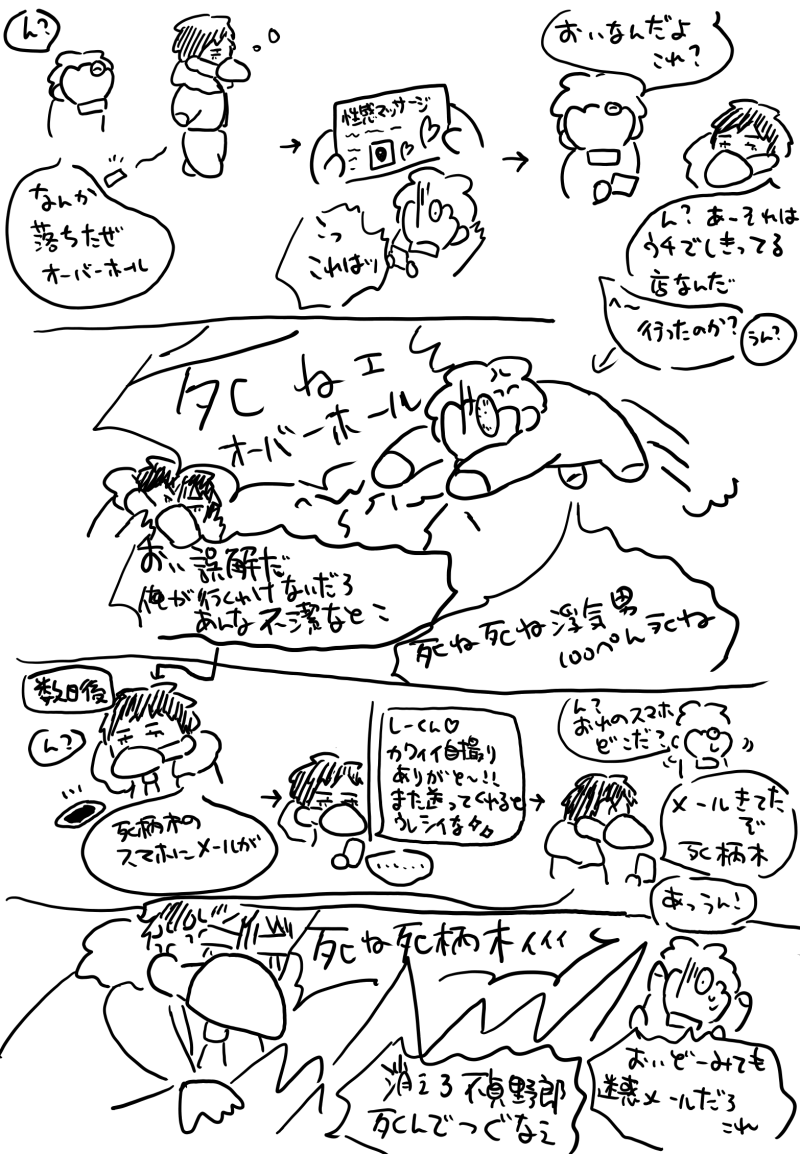 ん?
なんか
落ちたぜ
オーバーホール
性感マッサージ
こっ
これはッ
おいなんだよ
これ?
ん?あーそれは
ウチでしきってる
店なんだ
へ〜
行ったのか?
うん?
死ねェ
オーバーホール
おい誤解だ
俺が行くわけないだろ
あんな不潔なとこ
死ね死ね浮気男
100ぺん死ね
数日後
ん?
死柄木の
スマホにメールが
しーくん♡
カワイイ自撮り
ありがと〜!!
また送ってくれると
ウレシイな
……
ん?
おれのスマホ
どこだ?
メールきてた
ぞ
死柄木
あっうん!
死ね死柄木ィィィ
消えろ不貞野郎
死んでつぐなえ
おいどーみても
迷惑メールだろ
これ